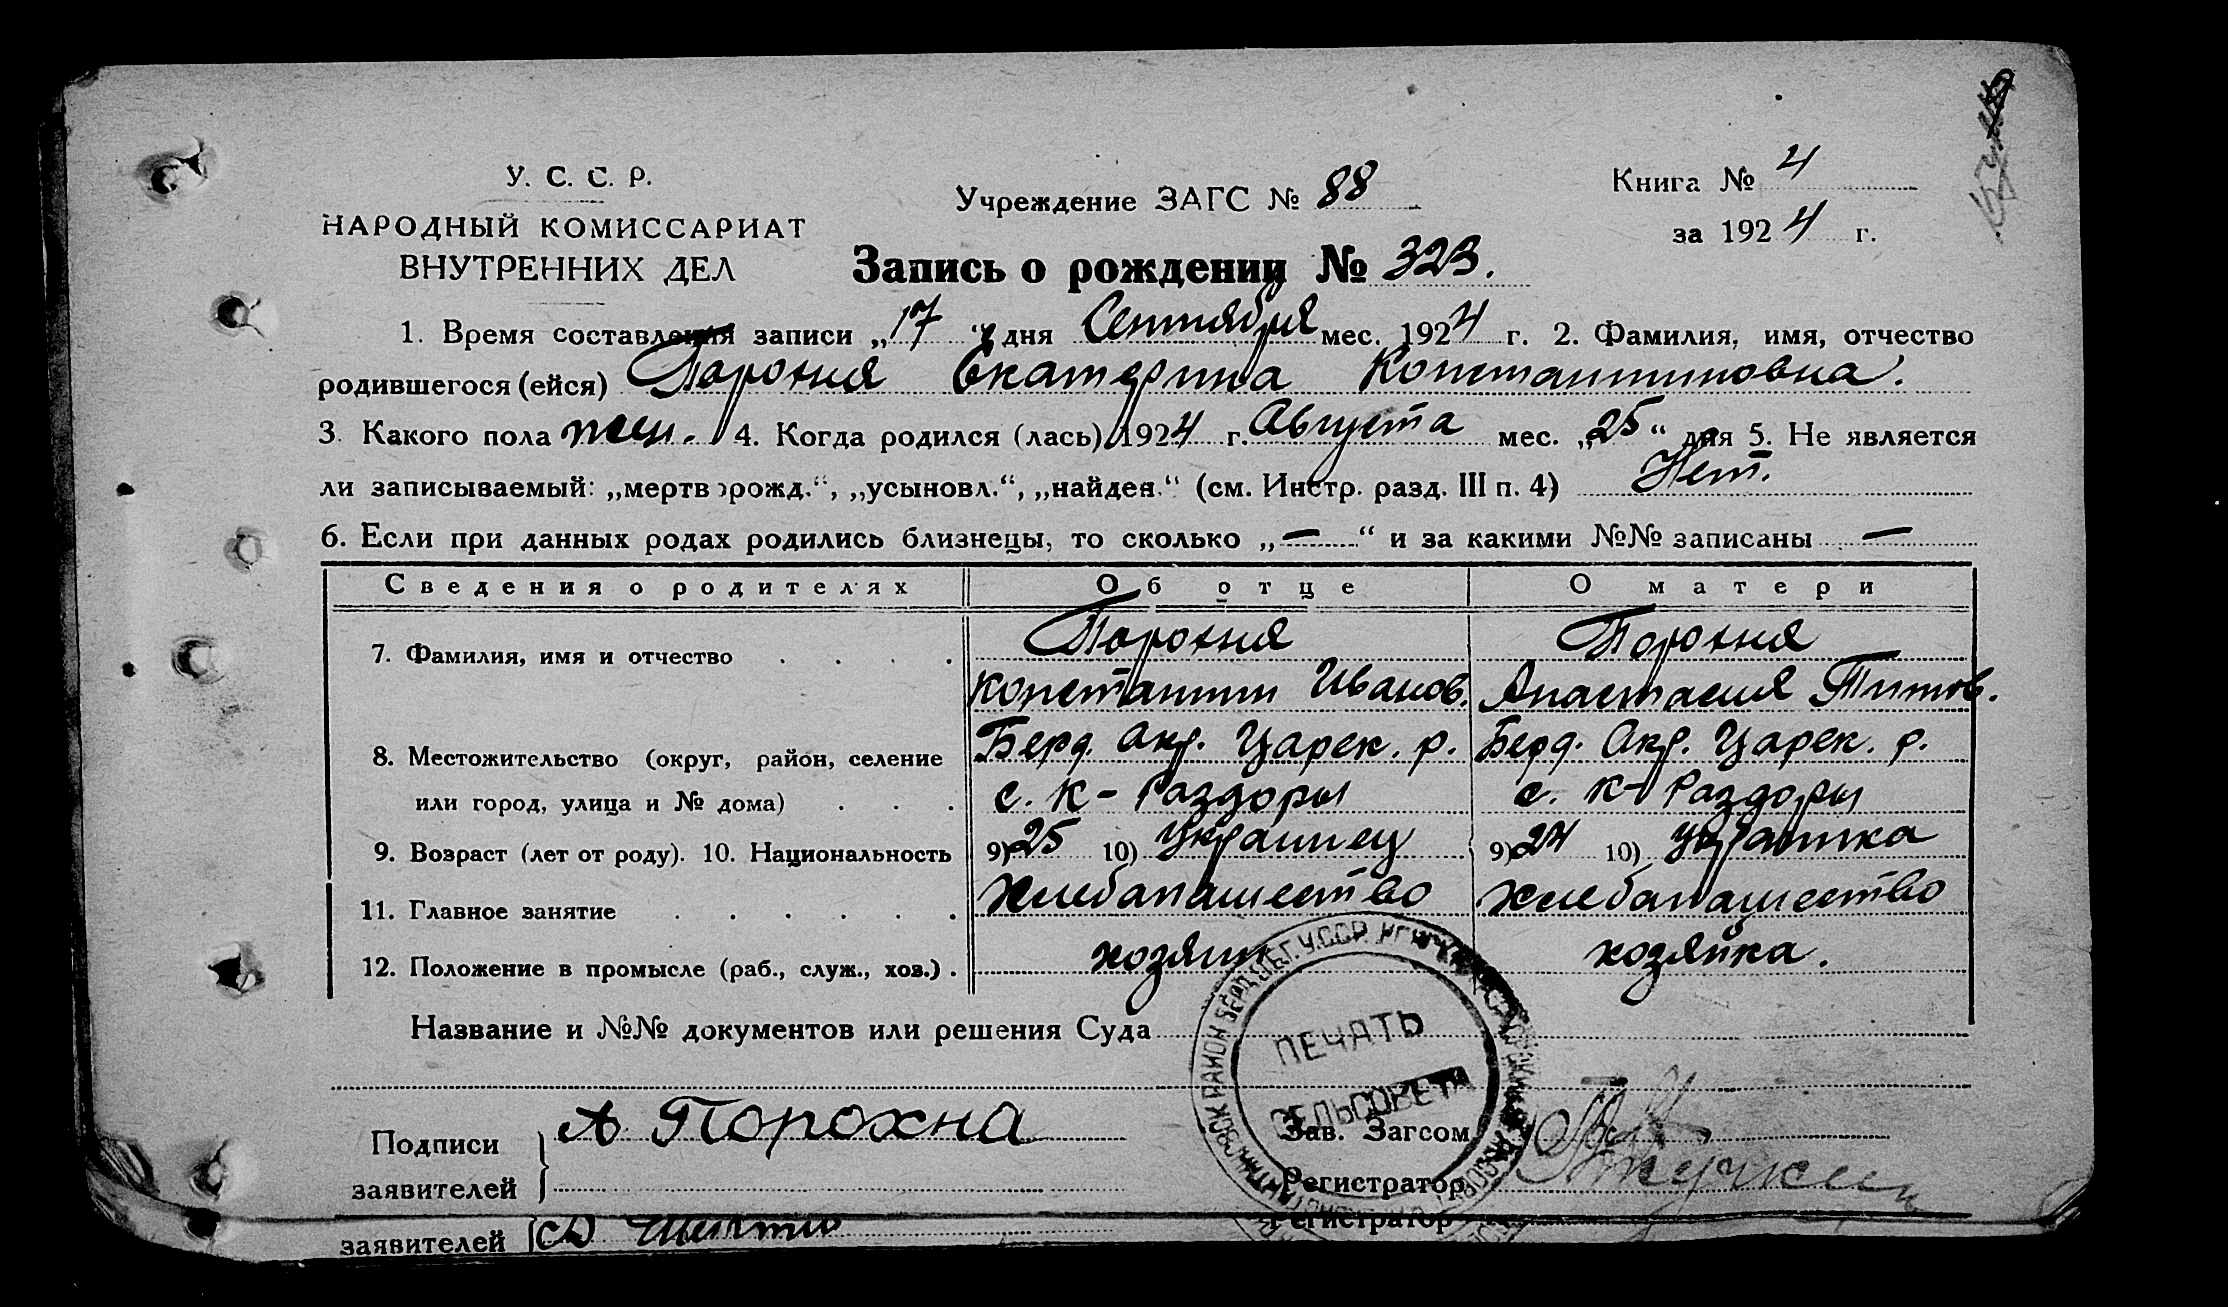 У. С. С. Р.
НАРОДНЫЙ КОМИССАРИАТ
ВНУТРЕННИХ ДЕЛ
Учреждение ЗАГС № 88
Книга № 4
за 1924 г.
Запись о рождении № 323.
1. Время составления записи „17“ дня Сентября мес. 1924 г. 2. Фамилия, имя, отчество
родившегося (ейся) Порохня Екатерина Константиновна.
3. Какого пола жен. 4. Когда родился (лась) 1924 г. Августа мес. „25“ дня 5. Не является
ли записываемый: „мертворожд.“, „усыновл.“, „найден.“ (см. Инстр. разд. III п. 4) Нет.
6. Если при данных родах родились близнецы, то сколько „—“ и за какими №№ записаны —
Сведения о родителях Об отце О матери
7. Фамилия, имя и отчество Порохня Порохня
Константин Иванов. Анастасия Титов.
8. Местожительство (округ, район, селение Берд. Окр. Царек. р. Берд. Окр. Царек. р.
или город, улица и № дома) с. К-Раздоры с. К-Раздоры
9. Возраст (лет от роду). 10. Национальность 9) 25 10) Украинец 9) 24 10) Украинка
11. Главное занятие Хлебопашество Хлебопашество
12. Положение в промысле (раб., служ., хоз.) хозяин хозяйка.
Название и №№ документов или решения Суда
ПЕЧАТЬ
СЕЛЬСОВЕТА
Подписи
заявителей
А Порохна
Зав. Загсом
Регистратор
заявителей
Регистратор